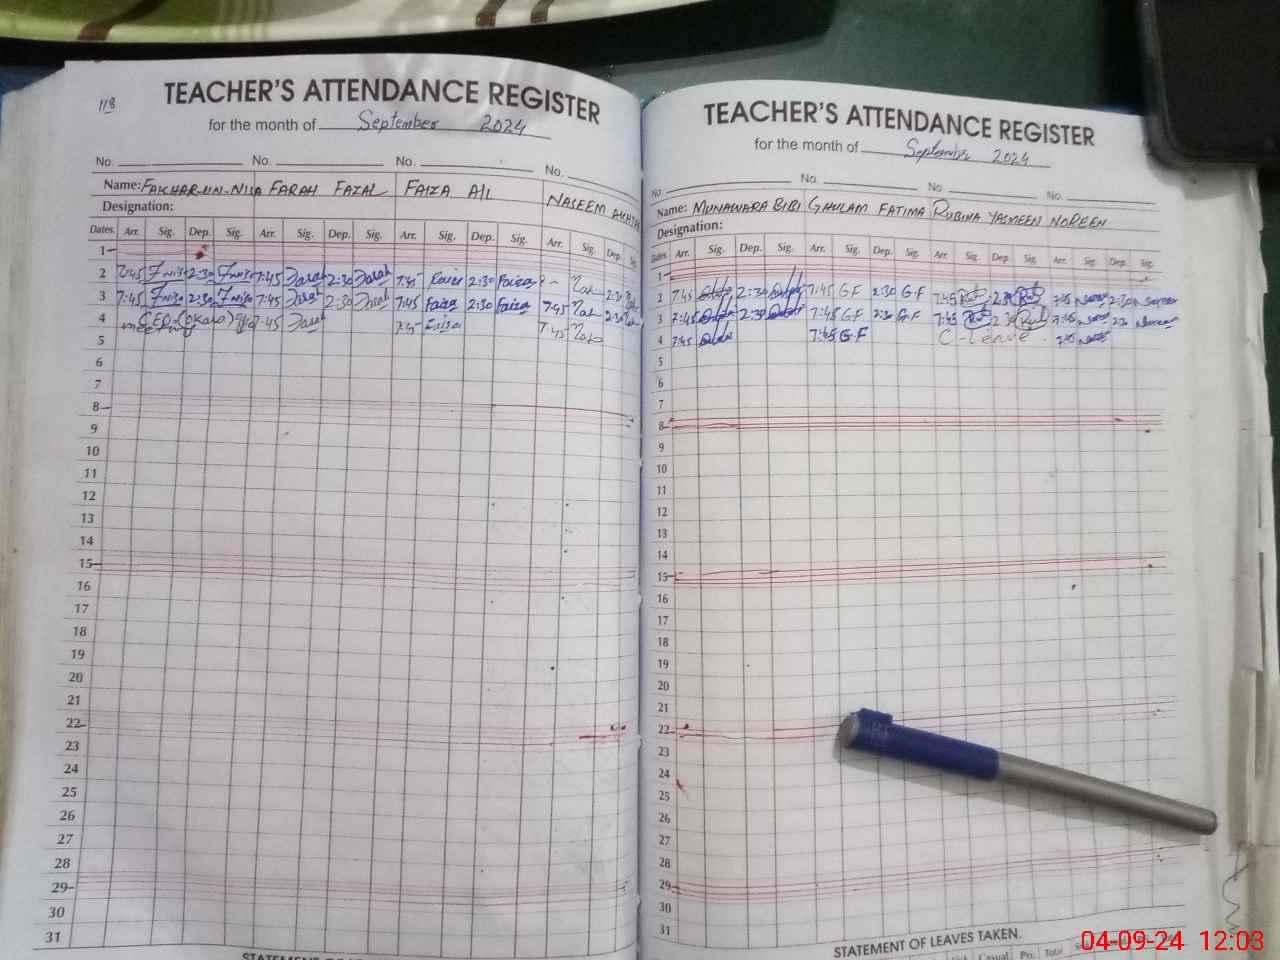 118
TEACHER'S ATTENDANCE REGISTER
for the month of September 2024
No. No. No. No.
Name: FAKHAR-UN-NISA FARAH FAZAL FAIZA ALI NASEEM AKHTAR
Designation:
Dates. Arr. Sig. Dep. Sig. Arr. Sig. Dep. Sig. Arr. Sig. Dep. Sig. Arr. Sig. Dep. Sig.
1
2 7:45 F.nisa 2:30 F.nisa 7:45 Farah 2:30 Farah 7:45 Faiza 2:30 Faiza 2:30
3 7:45 F.nisa 2:30 F.nisa 7:45 Farah 2:30 Farah 7:45 Faiza 2:30 Faiza 7:45 2:30
4 CEO (OKARA) 7:45 Farah 7:45 Faiza 7:45
meeting
5
6
7
8
9
10
11
12
13
14
15
16
17
18
19
20
21
22
23
24
25
26
27
28
29
30
31
TEACHER'S ATTENDANCE REGISTER
for the month of September 2024
No No. No. No.
Name: MUNAWARA BIBI GHULAM FATIMA RUBINA YASMEEN NOREEN
Designation:
Dates Arr. Sig. Dep. Sig. Arr. Sig. Dep. Sig. Arr. Sig. Dep. Sig. Arr. Sig. Dep. Sig.
1
2 7:45 2:30 7:45 G.F 2:30 G.F 7:45 2:30 7:45 Noreen 2:30 Noreen
3 7:45 2:30 7:45 G.F 2:30 G.F 7:45 2:30 7:45 Noreen 2:30 Noreen
4 7:45 7:45 G.F C-Leave. 7:45 Noreen
5
6
7
8
9
10
11
12
13
14
15
16
17
18
19
20
21
22
23
24
25
26
27
28
29
30
31
STATEMENT OF LEAVES TAKEN.
Casual Pri. Total
04-09-24 12:03